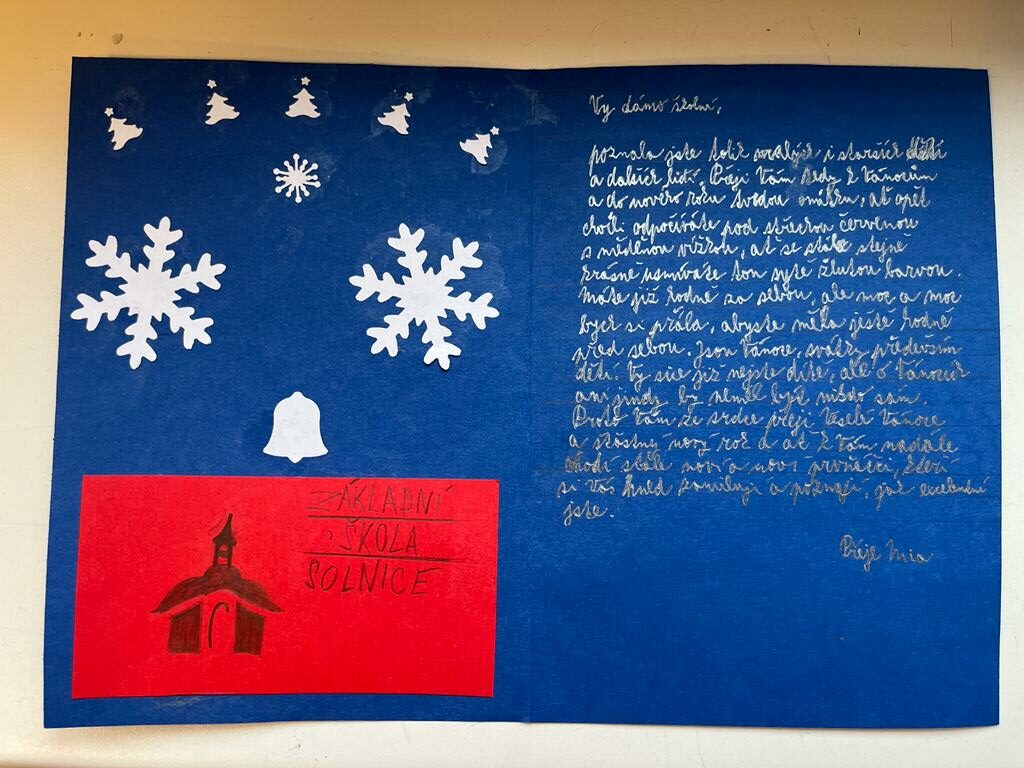 ZÁKLADNÍ
ŠKOLA
SOLNICE
Vy dámo školní,
poznala jste tolik malých i starších dětí
a dalších lidí. Přeji Vám tedy k Vánocům
a do nového roku tvrdou omítku, ať opět
chvíli odpočíváte pod střechou červenou
s měděnou vížkou, ať se stále stejně
krásně usmíváte tou sytě žlutou barvou.
Máte již hodně za sebou, ale moc a moc
bych si přála, abyste měla ještě hodně
před sebou. Jsou Vánoce, svátky především
dětí. Vy sice již nejste dítě, ale o Vánocích
ani jindy by neměl být nikdo sám.
Proto Vám ze srdce přeji Veselé Vánoce
a šťastný nový rok a ať k Vám nadále
chodí stále noví a noví prvňáčci, kteří
si Vás hned zamilují a poznají, jak excelentní
jste.
Přeje Mia